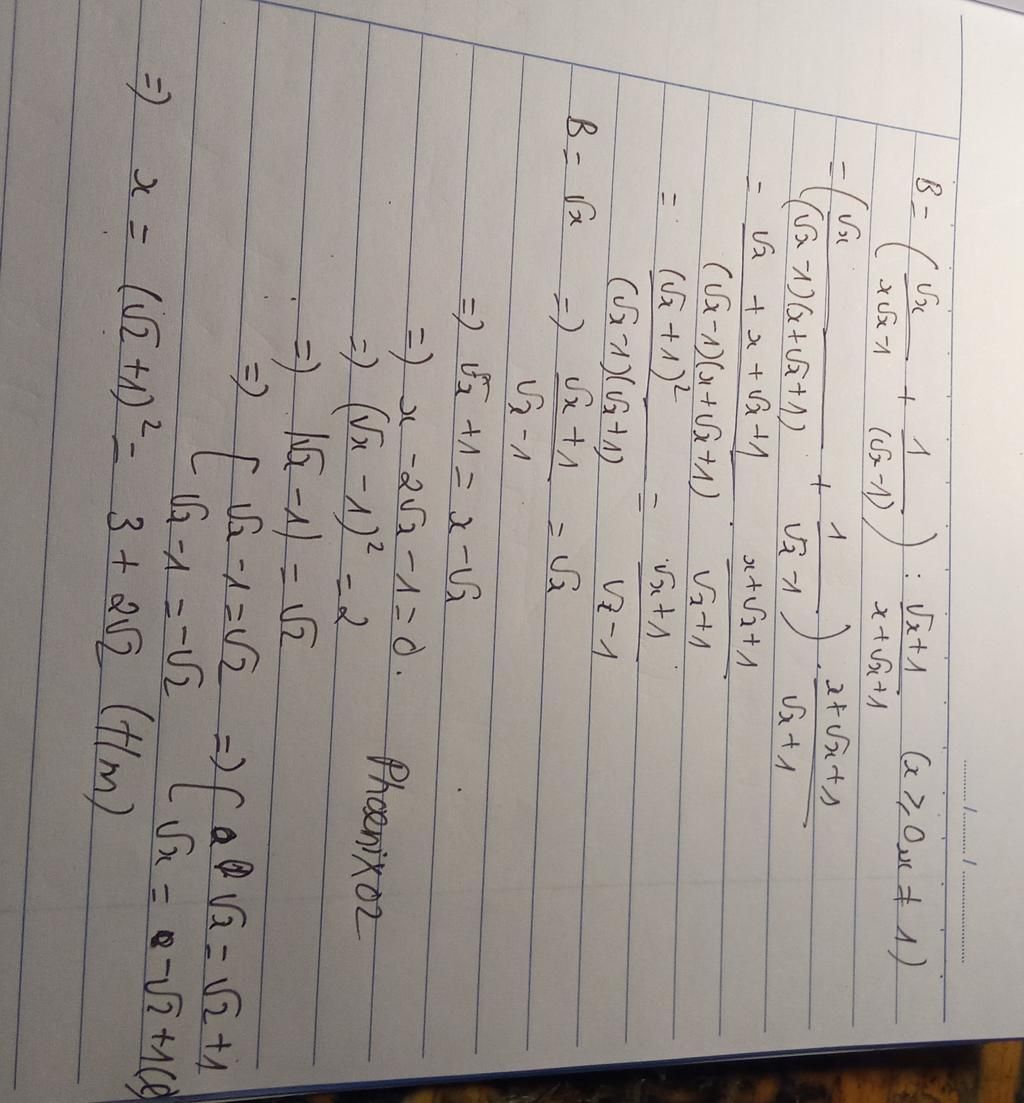 B = (√x/(x√x-1) + 1/(√x-1)) : (√x+1)/(x+√x+1) (x ≥ 0, x ≠ 1)
= (√x/((√x-1)(x+√x+1)) + 1/(√x-1)) . (x+√x+1)/(√x+1)
= (√x + x + √x + 1)/((√x-1)(x+√x+1)) . (x+√x+1)/(√x+1)
= (√x+1)²/((√x-1)(√x+1)) = (√x+1)/(√x-1)
B = √x => (√x+1)/(√x-1) = √x
=> √x + 1 = x - √x
=> x - 2√x - 1 = 0.
=> (√x - 1)² = 2 Phoenix02
=> |√x - 1| = √2
=> [ √x - 1 = √2 => [ √x = √2 + 1
[ √x - 1 = -√2 [ √x = -√2 + 1 (l)
=> x = (√2 + 1)² = 3 + 2√2 (t/m)